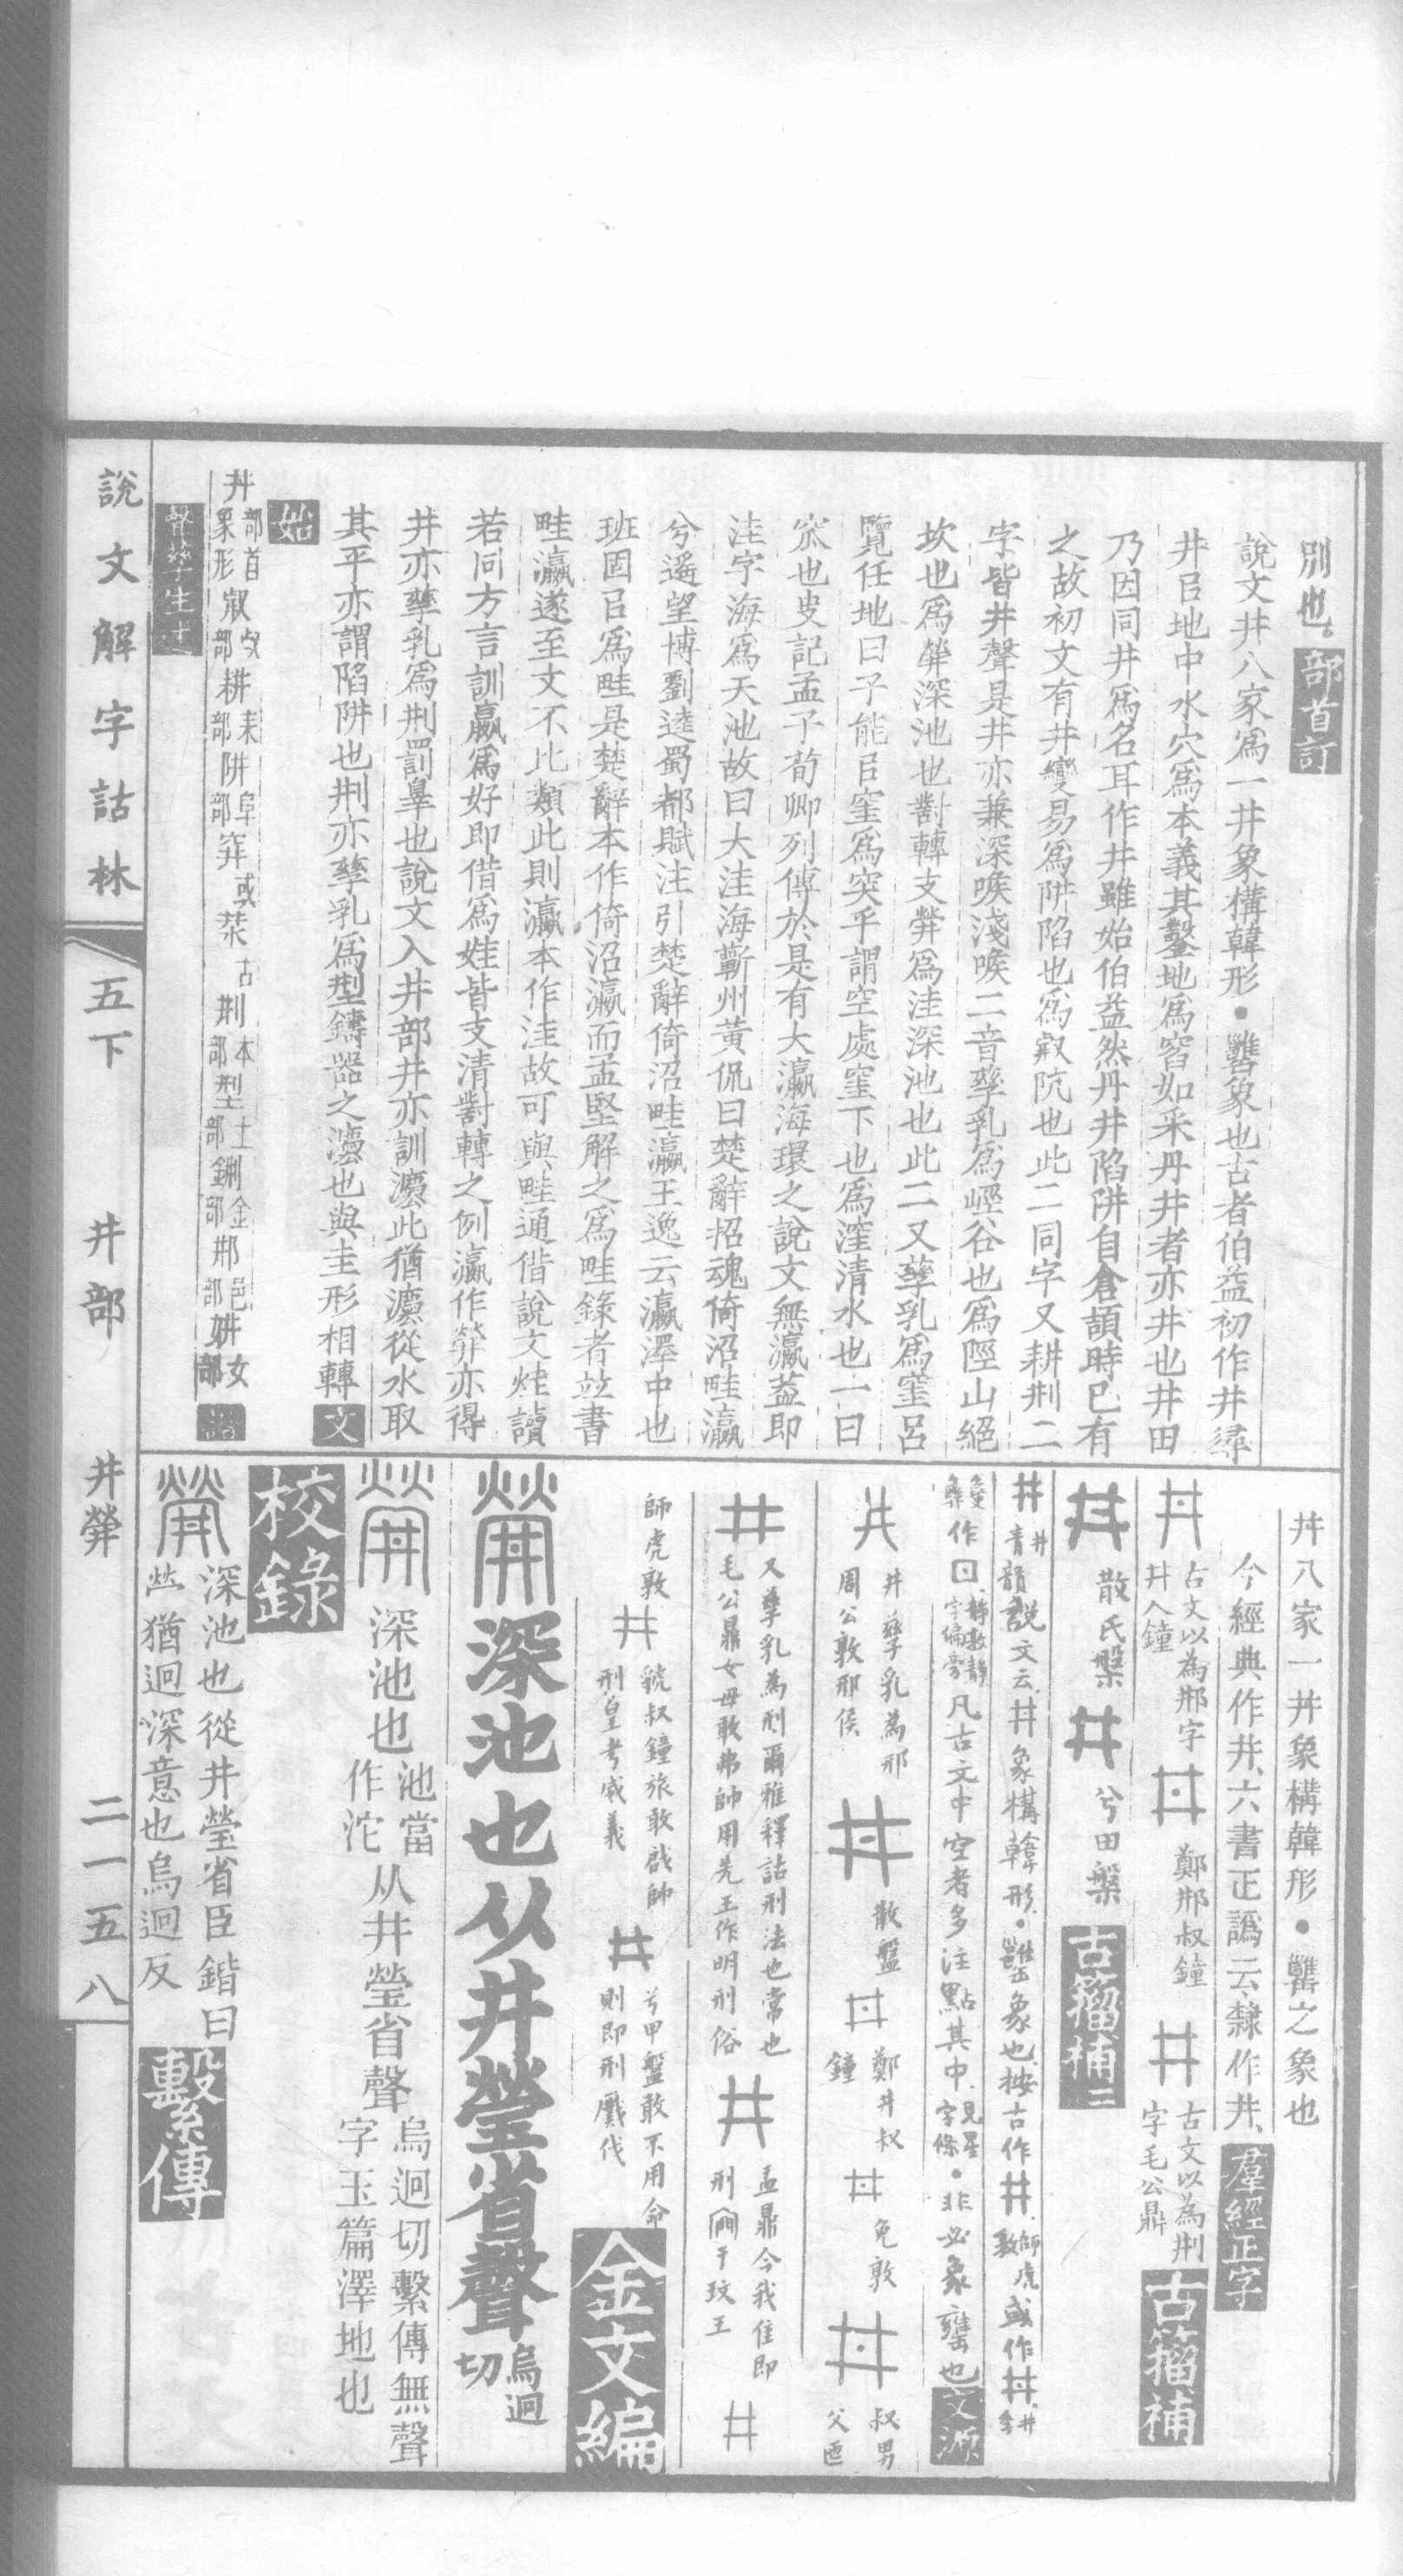 別也。部首訂
說文井八家爲一井象構韓形・䍇象也古者伯益初作井尋
井㠯地中水穴爲本義其鑿地爲窞如采丹井者亦井也井田
乃因同井爲名耳作井雖始伯益然丹井陷阱自倉頡時已有
之故初文有井變易爲阱陷也爲㕡阬也此二同字又耕荆二
字皆井聲是井亦兼深喉淺喉二音孳乳爲㕡谷也爲陘山絕
坎也爲䒯深池也對轉支䒯爲洼深池也此二又孳乳爲窐呂
覽任地曰子能㠯窐爲突乎謂空處窐下也爲漥清水也一曰
窊也史記孟子荀卿列傳於是有大瀛海環之說文無瀛葢即
洼字海爲天池故曰大洼海蘄州黃侃曰楚辭招魂倚沼畦瀛
兮遙望博劉逵蜀都賦注引楚辭倚沼畦瀛王逸云瀛澤中也
班固㠯爲畦是楚辭本作倚沼瀛而孟堅解之爲畦錄者竝書
畦瀛遂至文不比類此則瀛本作洼故可與畦通借說文烓讀
若同方言訓嬴爲好即借爲娃皆支清對轉之例瀛作䒯亦得
井亦孳乳爲荆罰辠也說文入井部井亦訓灋此猶灋從水取
其平亦謂陷阱也荆亦孳乳爲型鑄器之灋也與圭形相轉 文
始
丼部首象形㕡𣦼部耕耒部阱阜部穽或汬古荆本部型土部鉶金部邢邑部妌女部
丼八家一丼象構韓形・䍇之象也
今經典作井、六書正譌云、隸作井、羣經正字
古文以為邢字 井人鐘 鄭邢叔鐘 古文以為荆字毛公鼎 古籀補
散氏盤 兮田盤 古籀補二
井青韻說文云、丼象構韓形・䍇象也、按古作井師虎敦或作丼
作 靜敦靜字偏旁凡古文中空者多注點其中、見星字條・非必象甕也 文源
井孳乳為邢 周公敦邢侯 散盤 鄭井叔鐘 免敦 叔男父匜
又孳乳為刑爾雅釋詁刑法也常也 毛公鼎女毋敢弗帥用先王作明刑俗 盂鼎今我隹即刑𠖅于玟王
師虎敦 虢叔鐘旅敢啟帥刑皇考威義 兮甲盤敢不用命則即刑𢿢伐 金文編
䒯深池也从井瑩省聲烏迥切
䒯深池也池當作沱从井瑩省聲烏迥切繫傳無聲字玉篇澤地也
校錄
䒯深池也從井瑩省臣鍇曰䒯猶迥深意也烏迥反 繫傳
說文解字詁林 五下 井部 井䒯 二一五八